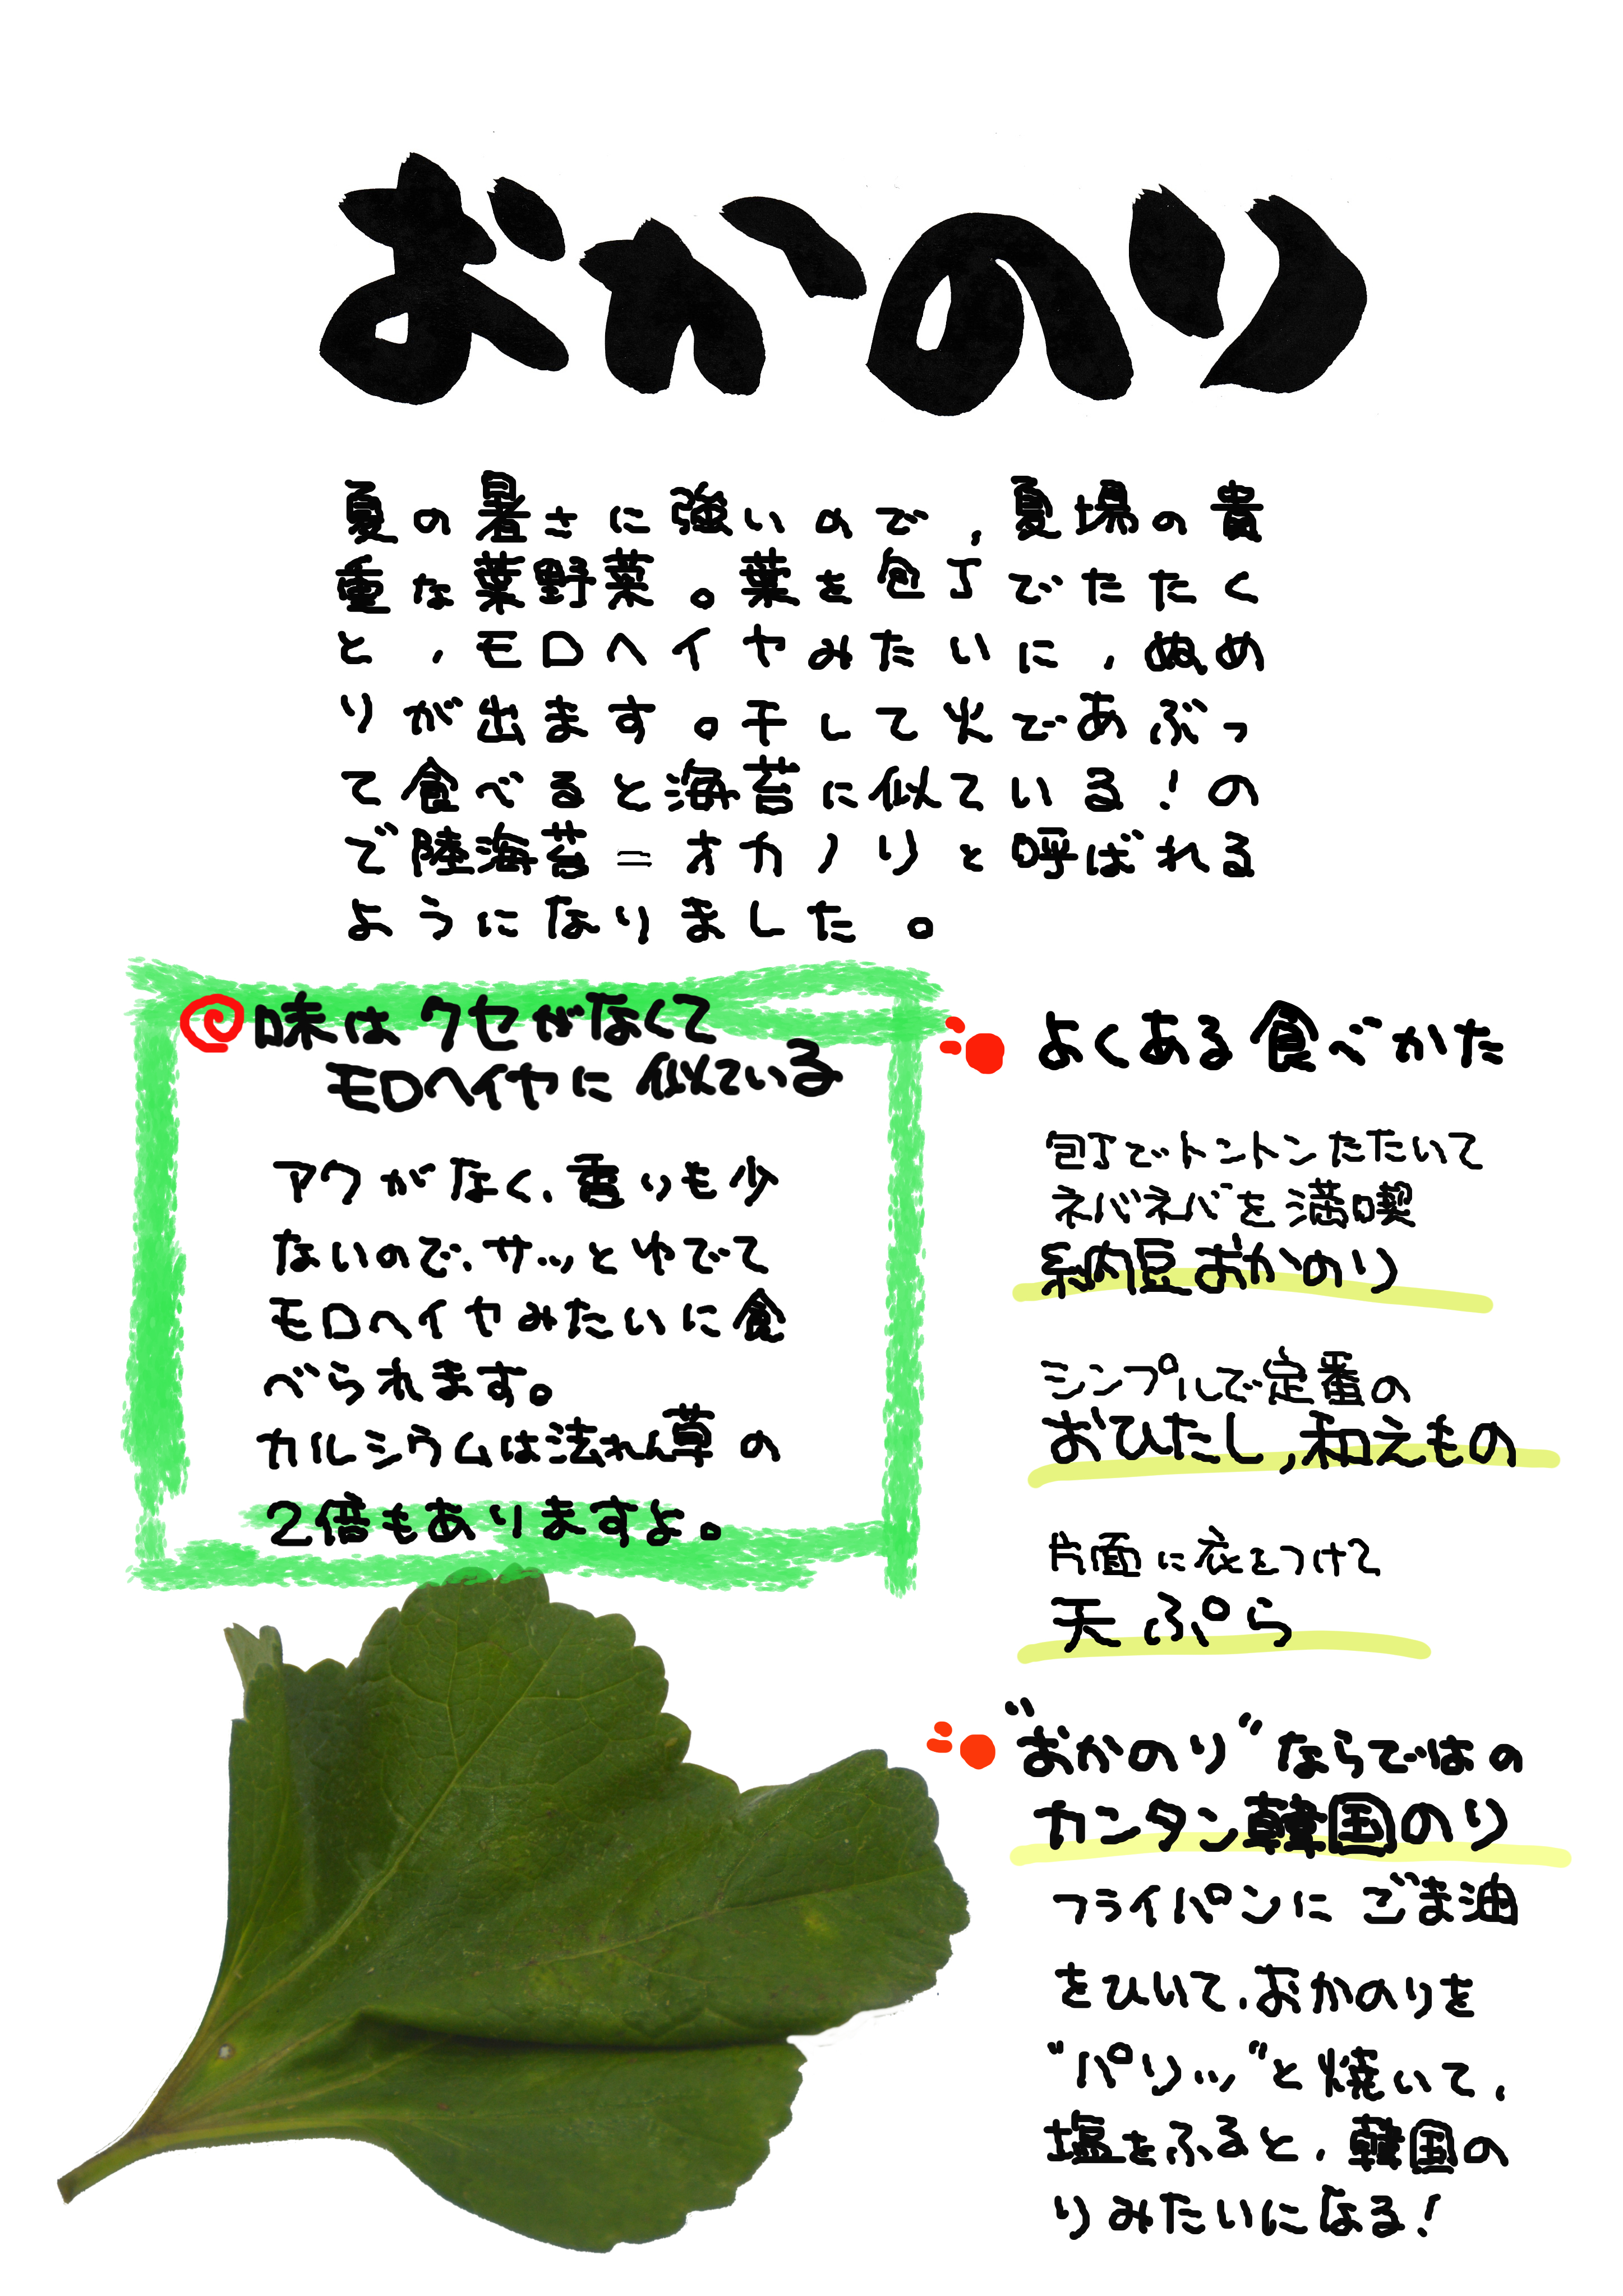 おかのり
夏の暑さに強いので、夏場の貴
重な葉野菜。葉を包丁でたたく
と、モロヘイヤみたいに、ぬめ
りが出ます。干して火であぶっ
て食べると海苔に似ている！の
で陸海苔＝オカノリと呼ばれる
ようになりました。
味はクセがなくて
モロヘイヤに似ている
アクがなく、香りも少
ないので、サッとゆでて
モロヘイヤみたいに食
べられます。
カルシウムは法れん草の
2倍もありますよ。
よくある食べかた
包丁でトントンたたいて
ネバネバを満喫
納豆おかのり
シンプルで定番の
おひたし,和えもの
片面に衣をつけて
天ぷら
"おかのり"ならではの
カンタン韓国のり
フライパンにごま油
をひいて、おかのりを
"パリッ"と焼いて、
塩をふると、韓国の
りみたいになる！